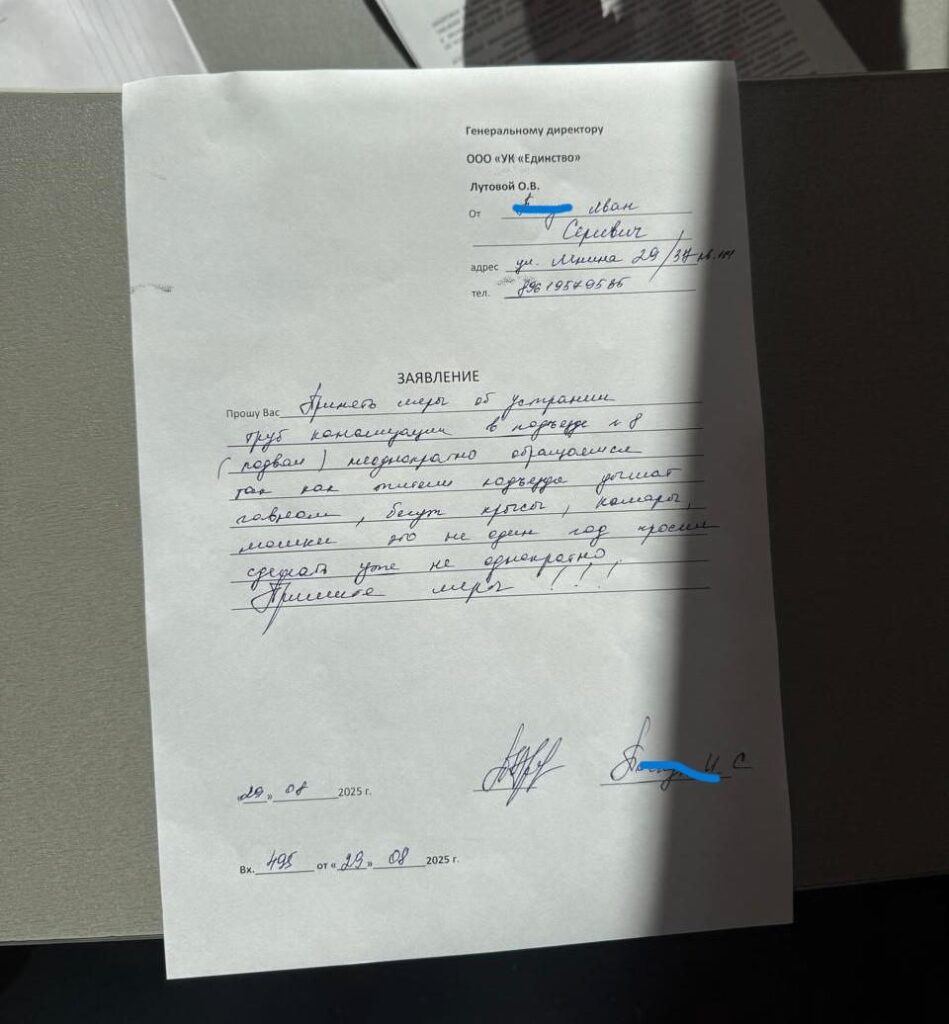 Генеральному директору
ООО «УК «Единство»
Лутовой О.В.
От Иван
Сергевич
адрес ул. Мнина 29/37 кв.
тел. 89619579585
ЗАЯВЛЕНИЕ
Прошу Вас Принеть меры об устрании
труб канализации в подъезде № 8
(подвал) неоднократно обращаемся
так как жители подъезда дышат
гавном, бегут крысы, камары,
мошки это не один год просим
сделать уже не однократно
Примите меры !!!
И. С
«29» 08 2025 г.
Вх. 495 от «29» 08 2025 г.